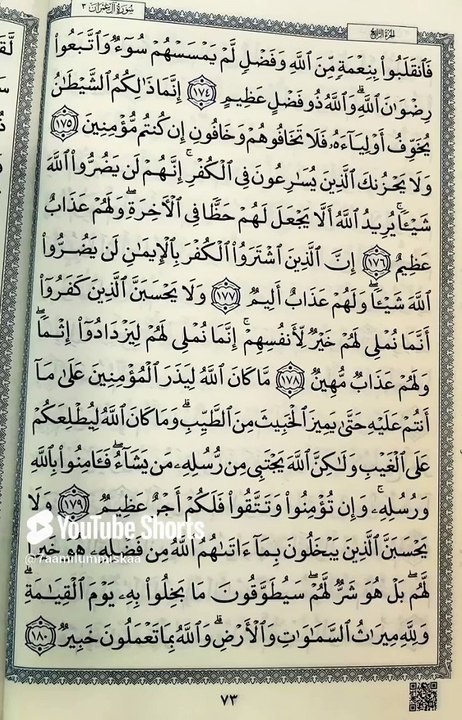 سُورَةُ آلِ عِمْرَانَ ٣
الجزء الرابع
فَٱنقَلَبُوا۟ بِنِعْمَةٍ مِّنَ ٱللَّهِ وَفَضْلٍ لَّمْ يَمْسَسْهُمْ سُوٓءٌ وَٱتَّبَعُوا۟
رِضْوَٰنَ ٱللَّهِ ۗ وَٱللَّهُ ذُو فَضْلٍ عَظِيمٍ ١٧٤ إِنَّمَا ذَٰلِكُمُ ٱلشَّيْطَٰنُ
يُخَوِّفُ أَوْلِيَآءَهُۥ فَلَا تَخَافُوهُمْ وَخَافُونِ إِن كُنتُم مُّؤْمِنِينَ ١٧٥
وَلَا يَحْزُنكَ ٱلَّذِينَ يُسَٰرِعُونَ فِى ٱلْكُفْرِ ۚ إِنَّهُمْ لَن يَضُرُّوا۟ ٱللَّهَ
شَيْـًٔا ۗ يُرِيدُ ٱللَّهُ أَلَّا يَجْعَلَ لَهُمْ حَظًّا فِى ٱلْءَاخِرَةِ ۖ وَلَهُمْ عَذَابٌ
عَظِيمٌ ١٧٦ إِنَّ ٱلَّذِينَ ٱشْتَرَوُا۟ ٱلْكُفْرَ بِٱلْإِيمَٰنِ لَن يَضُرُّوا۟
ٱللَّهَ شَيْـًٔا ۖ وَلَهُمْ عَذَابٌ أَلِيمٌ ١٧٧ وَلَا يَحْسَبَنَّ ٱلَّذِينَ كَفَرُوٓا۟
أَنَّمَا نُمْلِى لَهُمْ خَيْرٌ لِّأَنفُسِهِمْ ۚ إِنَّمَا نُمْلِى لَهُمْ لِيَزْدَادُوٓا۟ إِثْمًا ۚ
وَلَهُمْ عَذَابٌ مُّهِينٌ ١٧٨ مَّا كَانَ ٱللَّهُ لِيَذَرَ ٱلْمُؤْمِنِينَ عَلَىٰ مَآ
أَنتُمْ عَلَيْهِ حَتَّىٰ يَمِيزَ ٱلْخَبِيثَ مِنَ ٱلطَّيِّبِ ۗ وَمَا كَانَ ٱللَّهُ لِيُطْلِعَكُمْ
عَلَى ٱلْغَيْبِ وَلَٰكِنَّ ٱللَّهَ يَجْتَبِى مِن رُّسُلِهِۦ مَن يَشَآءُ ۖ فَـَٔامِنُوا۟ بِٱللَّهِ
وَرُسُلِهِۦ ۚ وَإِن تُؤْمِنُوا۟ وَتَتَّقُوا۟ فَلَكُمْ أَجْرٌ عَظِيمٌ ١٧٩ وَلَا
YouTube Shorts
يَحْسَبَنَّ ٱلَّذِينَ يَبْخَلُونَ بِمَآ ءَاتَىٰهُمُ ٱللَّهُ مِن فَضْلِهِۦ هُوَ خَيْرًا
@Taamilummiskaa
لَّهُم ۖ بَلْ هُوَ شَرٌّ لَّهُمْ ۖ سَيُطَوَّقُونَ مَا بَخِلُوا۟ بِهِۦ يَوْمَ ٱلْقِيَٰمَةِ ۗ
وَلِلَّهِ مِيرَٰثُ ٱلسَّمَٰوَٰتِ وَٱلْأَرْضِ ۗ وَٱللَّهُ بِمَا تَعْمَلُونَ خَبِيرٌ ١٨٠
٧٣